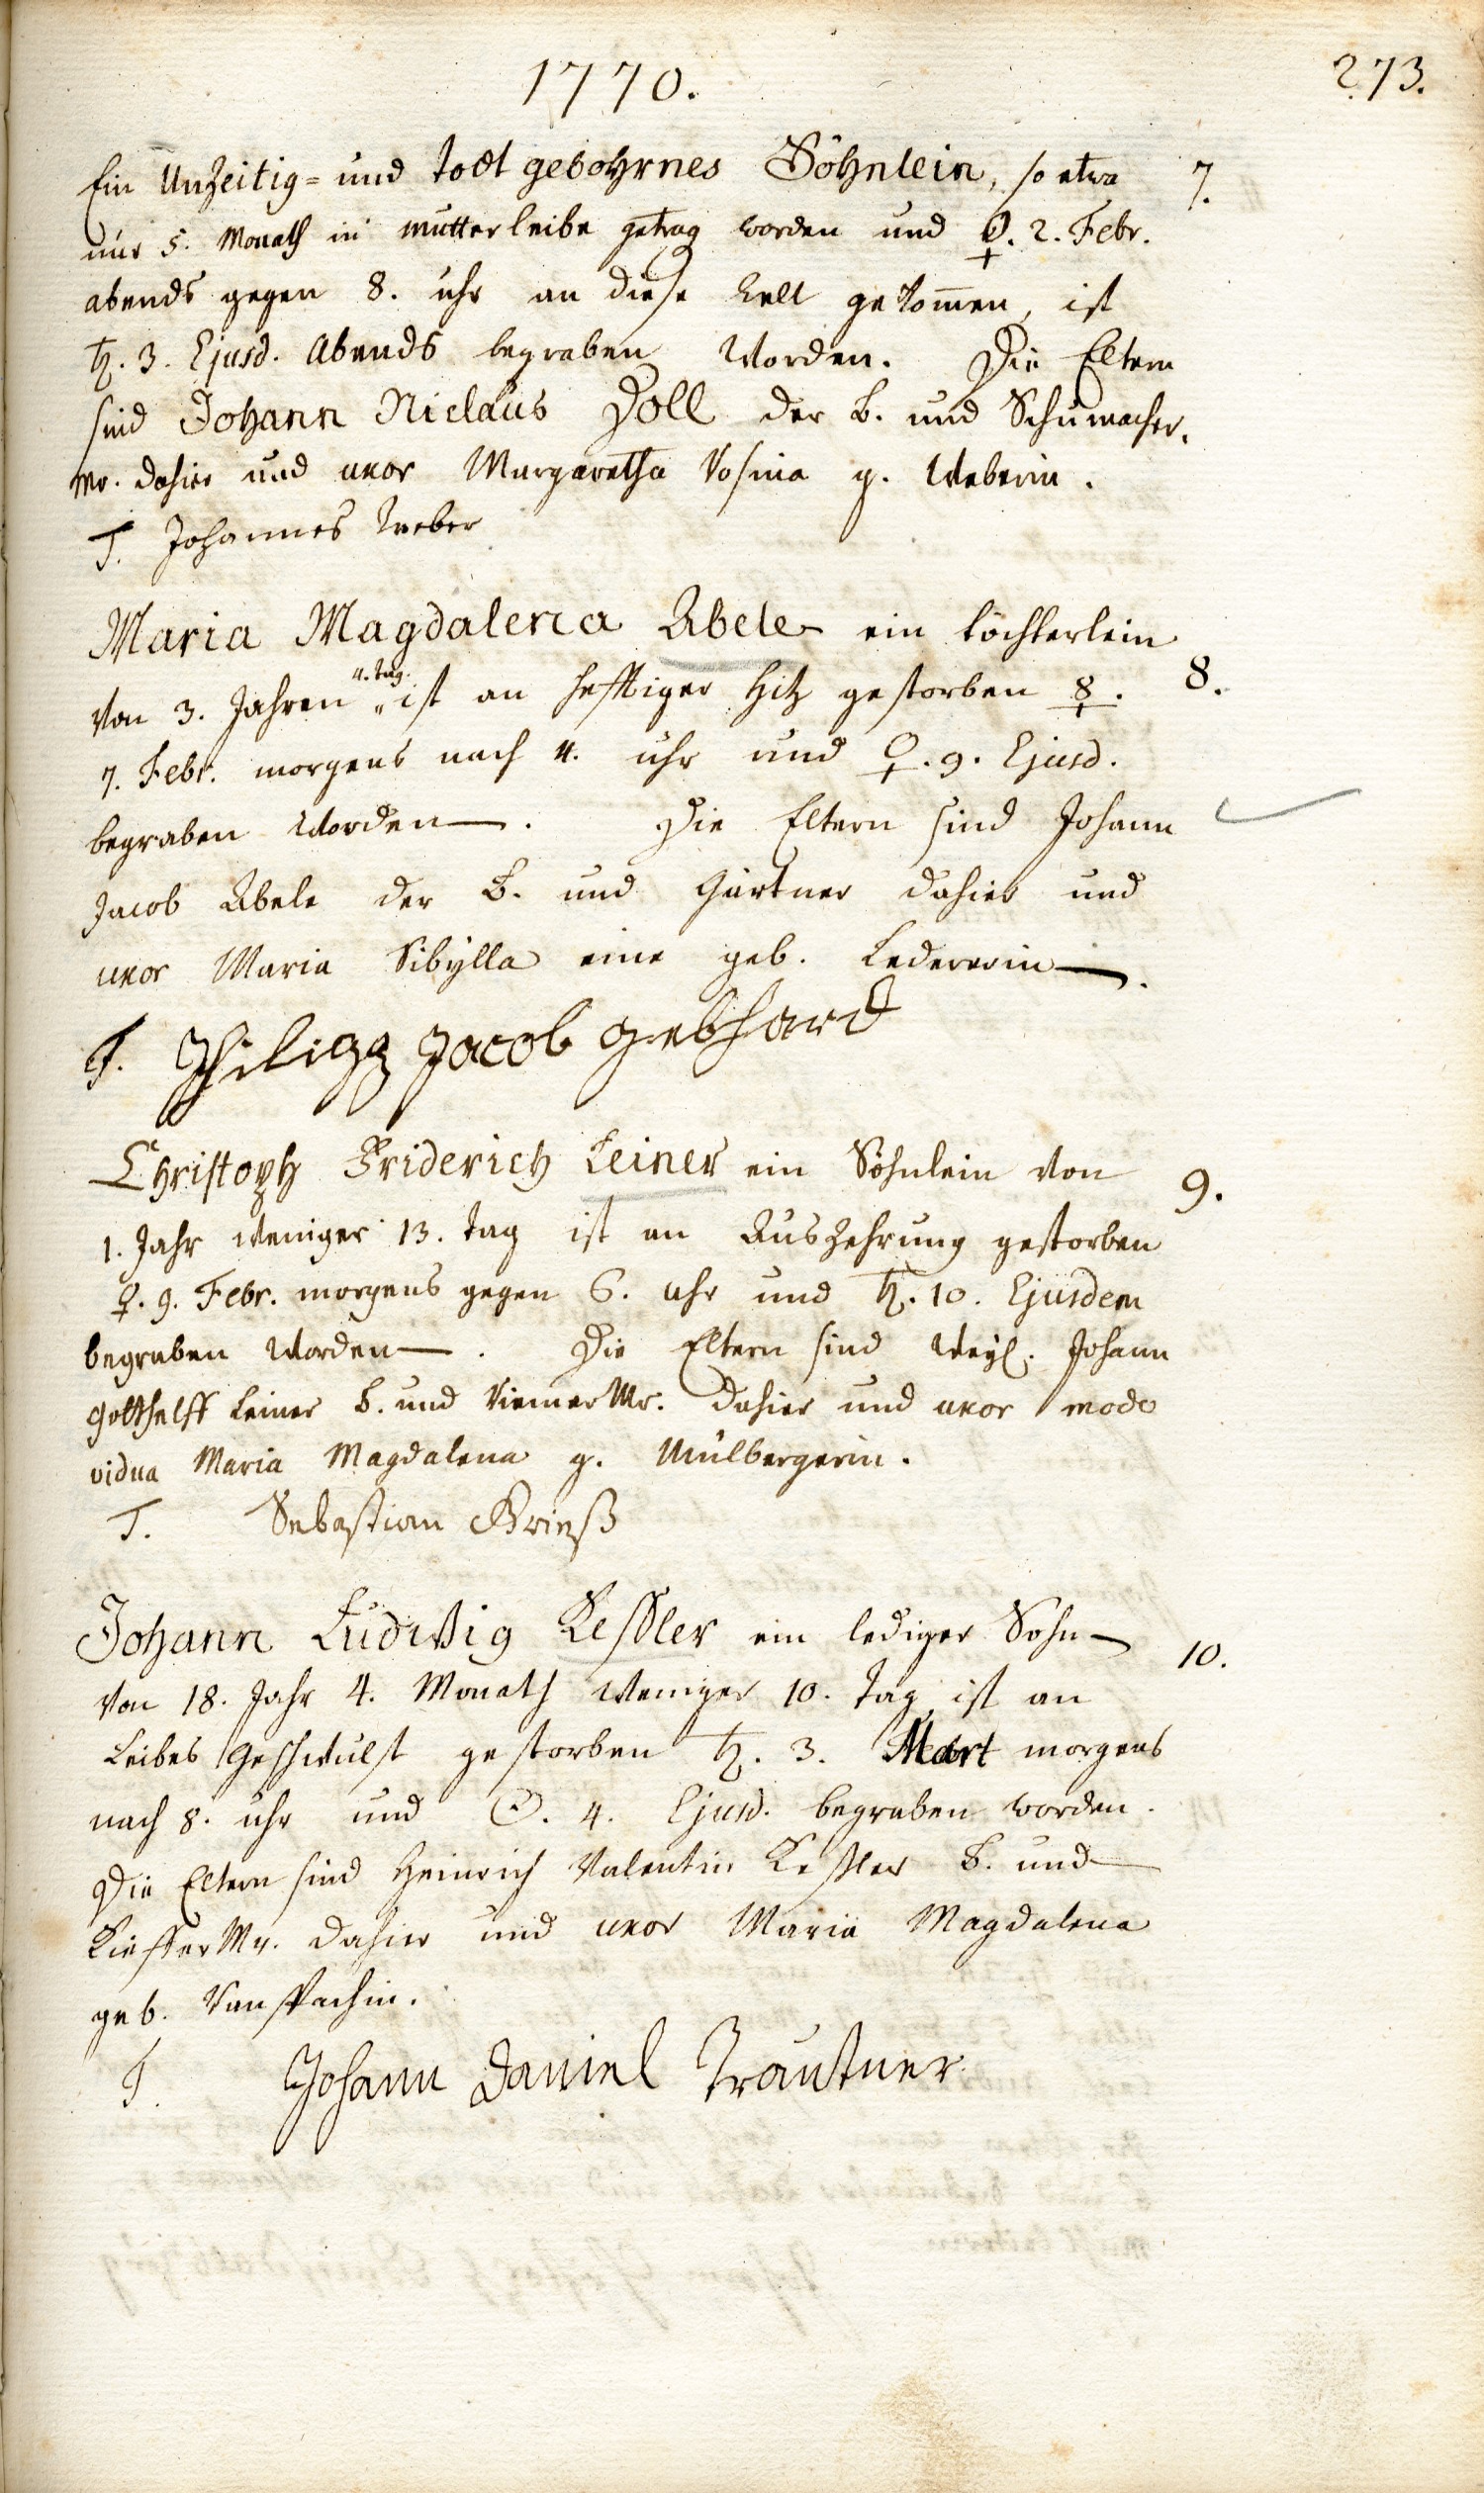 1770.
273.
Ein Unzeitig= und todt gebohrnes Söhnlein, so etwa 7.
nur 5. Monath in mutterleibe getrag worden und ♀. 2. Febr.
abends gegen 8. uhr an diese Welt gekom̄en, ist
♄. 3. Ejusd. Abends begraben worden. Die Eltern
sind Johann Niclaus Doll der B. und Schumacher.
Mr. dahier und uxor Margaretha Rosina g. Weberin.
T. Johannes Weber
Maria Magdalena Abele ein töchterlein
4. tag.
von 3. Jahren " ist an hefftiger Hitz gestorben ☿. 8.
7. Febr. morgens nach 4. uhr und ♀. 9. Ejusd.
begraben worden. Die Eltern sind Johann
Jacob Abele der B. und Gärtner dahier und
uxor Maria Sibylla eine geb. Ledererin.
T. Philipp Jacob Gebhard
Christoph Friderich Leiner ein Söhnlein von 9.
1. Jahr weniger 13. tag ist an Auszehrung gestorben
♀. 9. Febr. morgens gegen 6. uhr und ♄. 10. Ejusdem
begraben worden. Die Eltern sind weyl. Johann
Gotthelff Leiner B. und Riemer Mr. dahier und uxor modo
vidua Maria Magdalena g. Mülbergerin.
T. Sebastian Grieß
Johann Ludwig Kessler ein lediger Sohn 10.
von 18. Jahr 4. Monath weniger 10. Tag ist an
Leibes Geschwulst gestorben ♄. 3. Mart morgens
nach 8. uhr und ☉. 4. Ejusd. begraben worden.
Die Eltern sind Heinrich Valentin Kessler B. und
Kieffer Mr. dahier und uxor Maria Magdalena
geb.
T. Johann Daniel Trautner